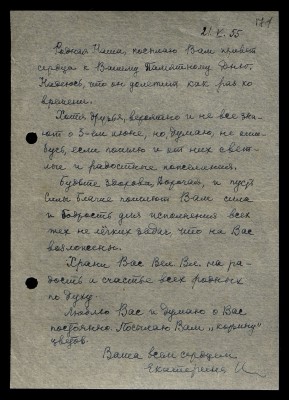 21.V.55
Родная Наша, посылаю Вам привет
сердца к Вашему Памятному Дню.
Надеюсь, что он долетит как раз ко
времени.
Хотя друзья, вероятно и не все зна-
ют о 5-ом июне, но думаю, не оши-
бусь, если пошлю и от них свет-
лые и радостные пожелания.
Будьте здоровы, Дорогая, и пусть
Силы Благие пошлют Вам сила
и бодрость для исполнения всех
тех не лёгких задач, что на Вас
возложены.
Храни Вас Вел. Вл. на ра-
дость и счастье всех родных
по духу.
Люблю Вас и думаю о Вас
постоянно. Посылаю Вам „корзину"
цветов.
Ваша всем сердцем
Екатерина И